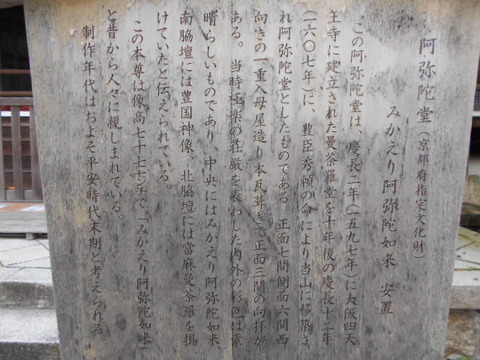 阿弥陀堂(京都府指定文化財)
みかえり阿弥陀如来 安置
この阿弥陀堂は、慶長二年(一五九七年)に大阪四天
王寺に建立された曼荼羅堂を十年後の慶長十二年
(一六〇七年)に、豊臣秀頼の命により当山に移築さ
れ阿弥陀堂としたものである。正面七間側面六間西
向きの一重入母屋造り本瓦葺きで正面三間の向拝が
ある。当時極楽の荘厳を表わした内外の彩色は素
晴らしいものであり、中央にはみかえり阿弥陀如来
南脇壇には豊国神像、北脇壇には當麻曼荼羅を掛
けていたと伝えられている。
この本尊は像高七十七センチで「みかえり阿弥陀如来」
と昔から人々に親しまれている。
制作年代はおよそ平安時代末期と考えられる